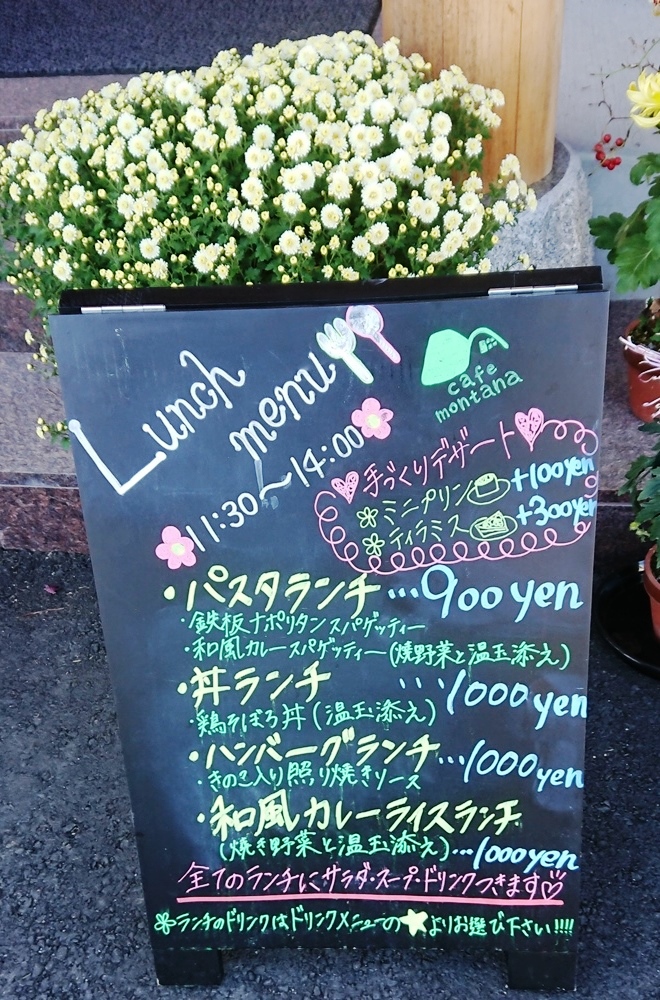 Lunch
menu
cafe
montana
11:30～14:00
手づくりデザート
ミニプリン +100yen
ティラミス +300yen
・パスタランチ…900yen
・鉄板ナポリタンスパゲッティー
・和風カレースパゲッティー(焼野菜と温玉添え)
・丼ランチ …1000yen
・鶏そぼろ丼(温玉添え)
・ハンバーグランチ…1000yen
・きのこ入り照り焼きソース
・和風カレーライスランチ
(焼き野菜と温玉添え)…1000yen
全てのランチにサラダ・スープ・ドリンクつきます♡
ランチのドリンクはドリンクメニューの★よりお選び下さい!!!!